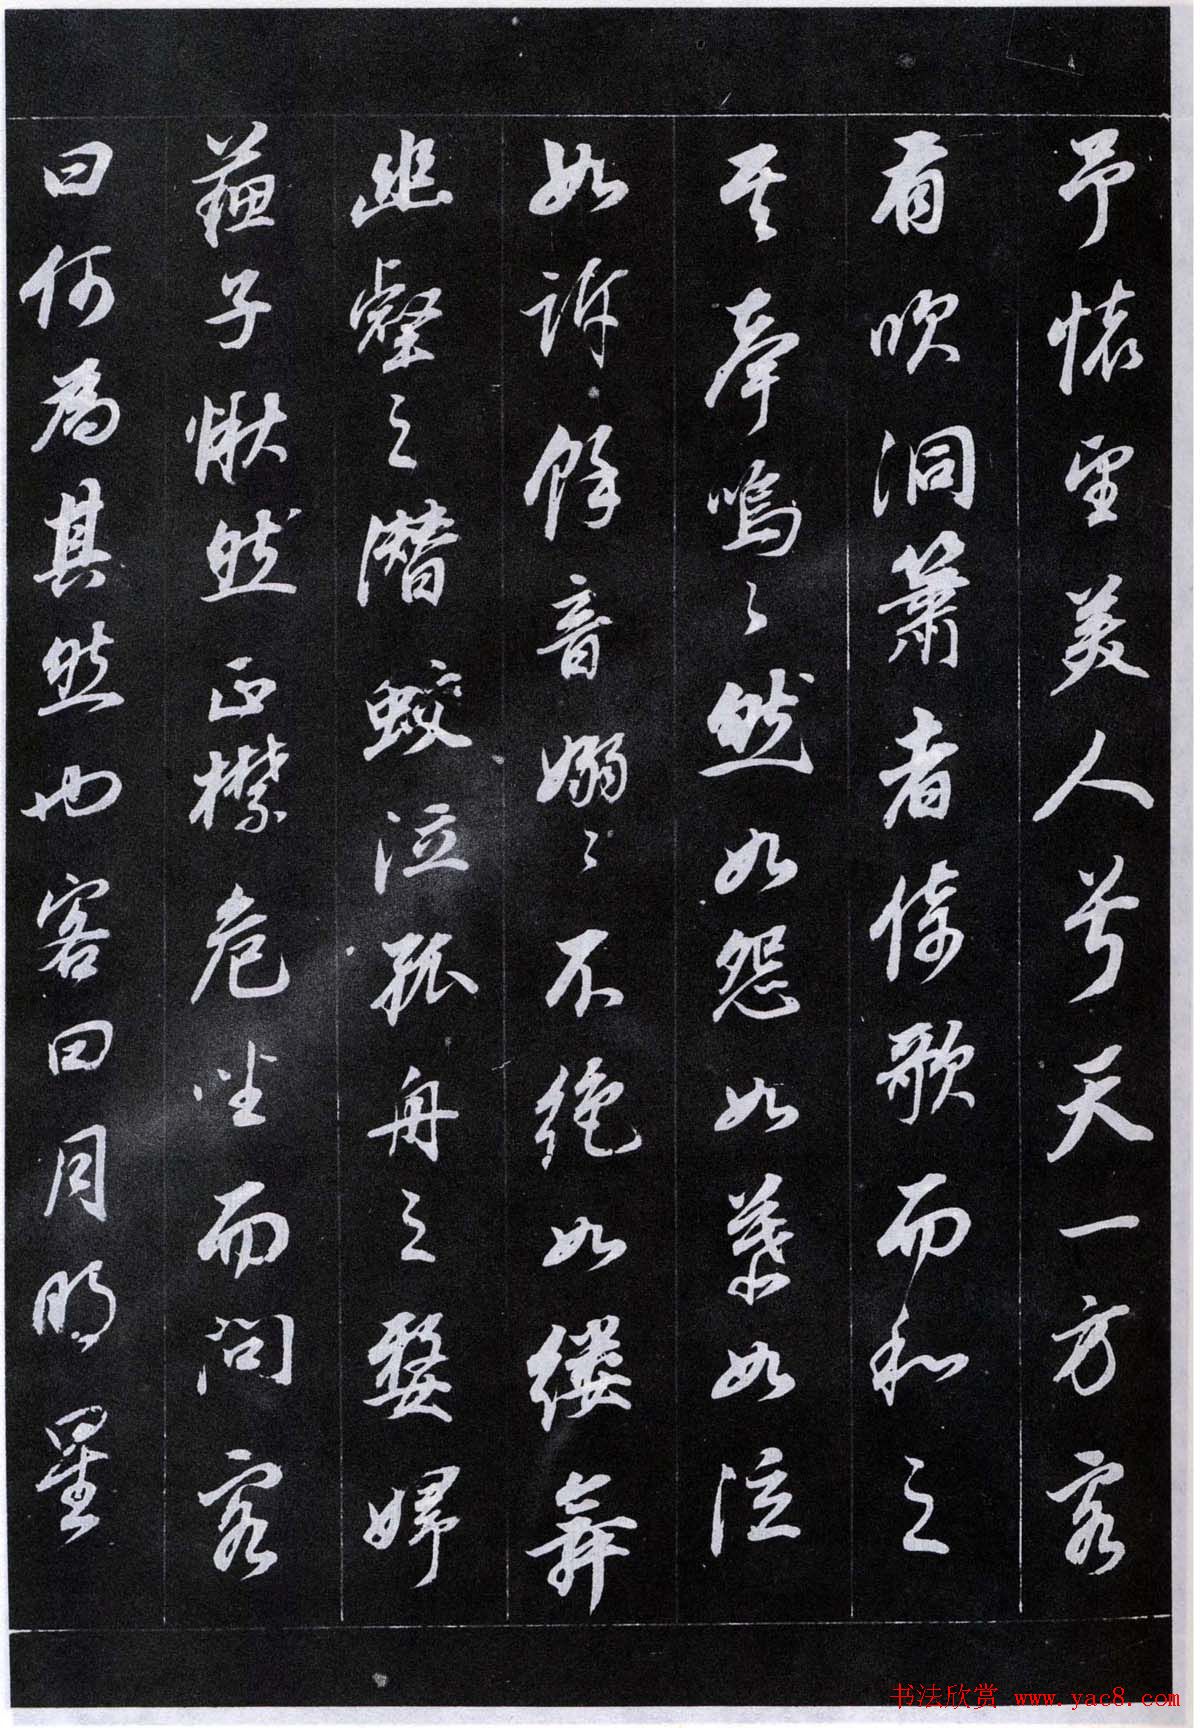 予懷望美人兮天一方客
有吹洞簫者倚歌而和之
其聲嗚〻然如怨如慕如泣
如訴餘音嫋〻不絕如縷舞
幽壑之潛蛟泣孤舟之嫠婦
蘇子愀然正襟危坐而問客
曰何為其然也客曰月明星
书法欣赏 www.yac8.com